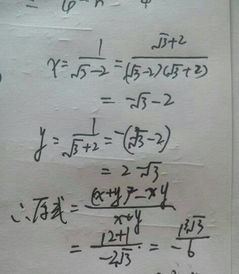 x = 1/(√3-2) = (√3+2)/((√3-2)(√3+2))
= -√3-2
y = 1/(√3+2) = -(√3-2)
= 2-√3
∴原式 = ((x+y)²-xy)/(x+y)
= (12+1)/(-2√3) = -13√3/6